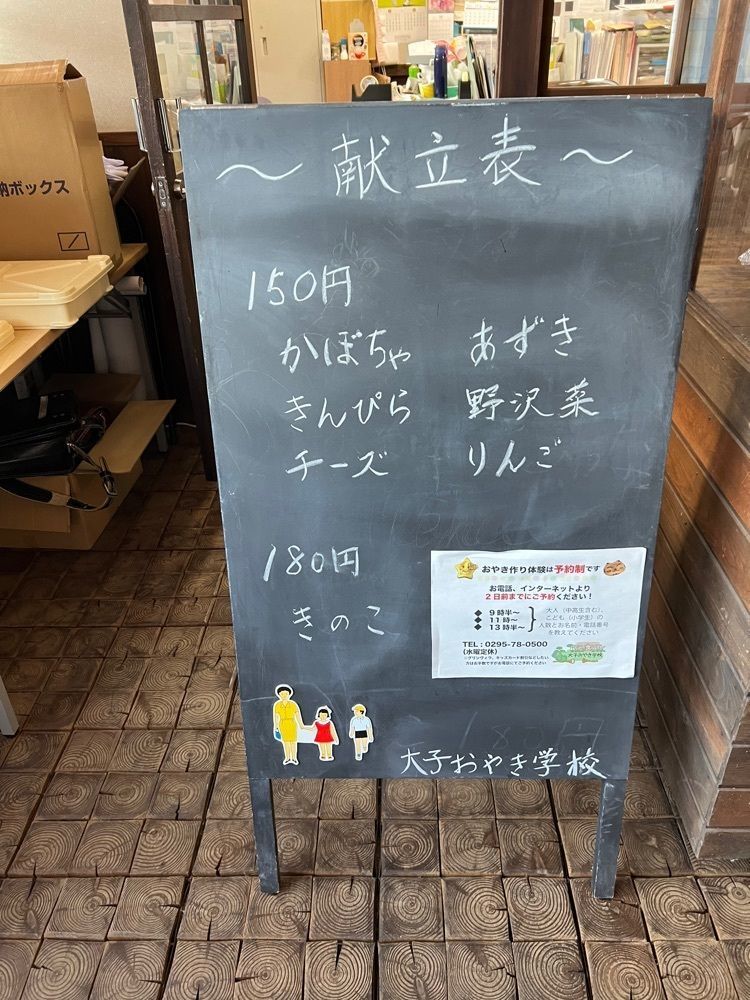 納ボックス
～献立表～
150円
かぼちゃ あずき
きんぴら 野沢菜
チーズ りんご
180円
きのこ
おやき作り体験は予約制です
お電話、インターネットより
2日前までにご予約ください！
◆ 9時半～
◆ 11時～
◆ 13時半～
大人（中高生含む）、
こども（小学生）の
人数とお名前・電話番号
を教えてください
TEL：0295-78-0500
(水曜定休)
大子おやき学校
大子おやき学校